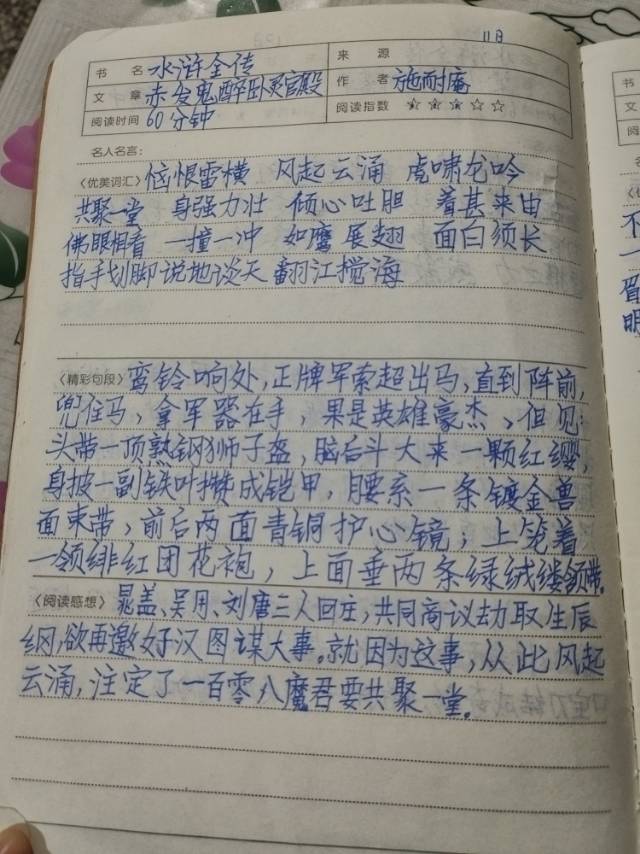 11日
书 名 水浒全传 来 源
文 章 赤发鬼醉卧灵官殿 作 者 施耐庵
阅读时间 60分钟 阅读指数 ★★★☆☆
名人名言:
〈优美词汇〉恼恨雷横 风起云涌 虎啸龙吟
共聚一堂 身强力壮 倾心吐胆 着甚来由
佛眼相看 一撞一冲 如鹰展翅 面白须长
指手划脚说地谈天 翻江搅海
〈精彩句段〉鸾铃响处,正牌军索超出马,直到阵前,
兜住马,拿军器在手,果是英雄豪杰、但见:
头带一顶熟钢狮子盔,脑后斗大来一颗红缨,
身披一副铁叶攒成铠甲,腰系一条镀金兽
面束带,前后两面青铜护心镜;上笼着
一领绯红团花袍,上面垂两条绿绒缕领带。
〈阅读感想〉晁盖、吴用、刘唐三人回庄,共同商议劫取生辰
纲,欲再邀好汉图谋大事。就因为这事,从此风起
云涌,注定了一百零八魔君要共聚一堂。
书
文
阅
不
一
眉
明